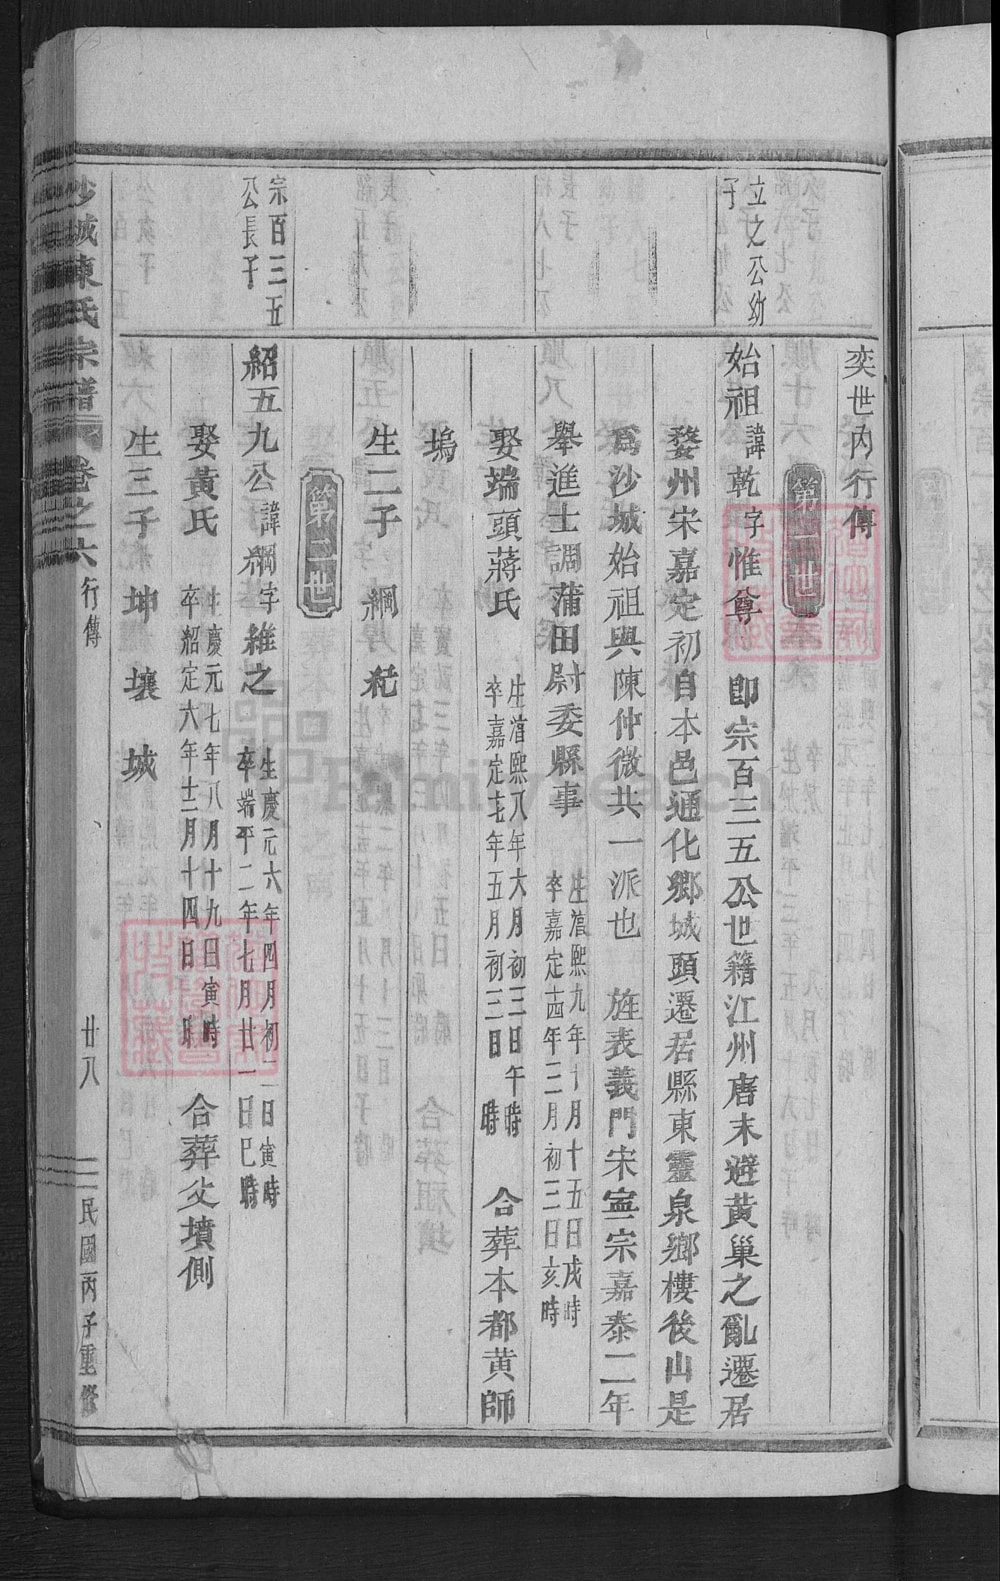 奕世內行傳
第一世
立之公幼子
始祖諱乾字惟尊 卽宗百三五公世籍江州唐末避黃巢之亂遷居
婺州宋嘉定初自本邑通化鄉城頭遷居縣東靈泉鄉樓後山是
爲沙城始祖與陳仲微共一派也 旌表義門宋寧宗嘉泰二年
舉進士調蒲田尉委縣事 生淳熙九年十月十五日戌時
卒嘉定十四年三月初三日亥時
娶端頭蔣氏 生淳熙八年六月初三日午時
卒嘉定十七年五月初三日時 合葬本都黃師
塢
生二子 綱 紀
第二世
宗百三五公長子
紹五九公諱綱字維之 生慶元六年四月初二日寅時
卒端平二年七月廿一日巳時
娶黃氏 生慶元七年八月十九日寅時
卒紹定六年十二月十四日時 合葬父墳側
生三子 坤 壤 城
沙城陳氏宗譜 卷之六 行傳 廿八 民國丙子重修